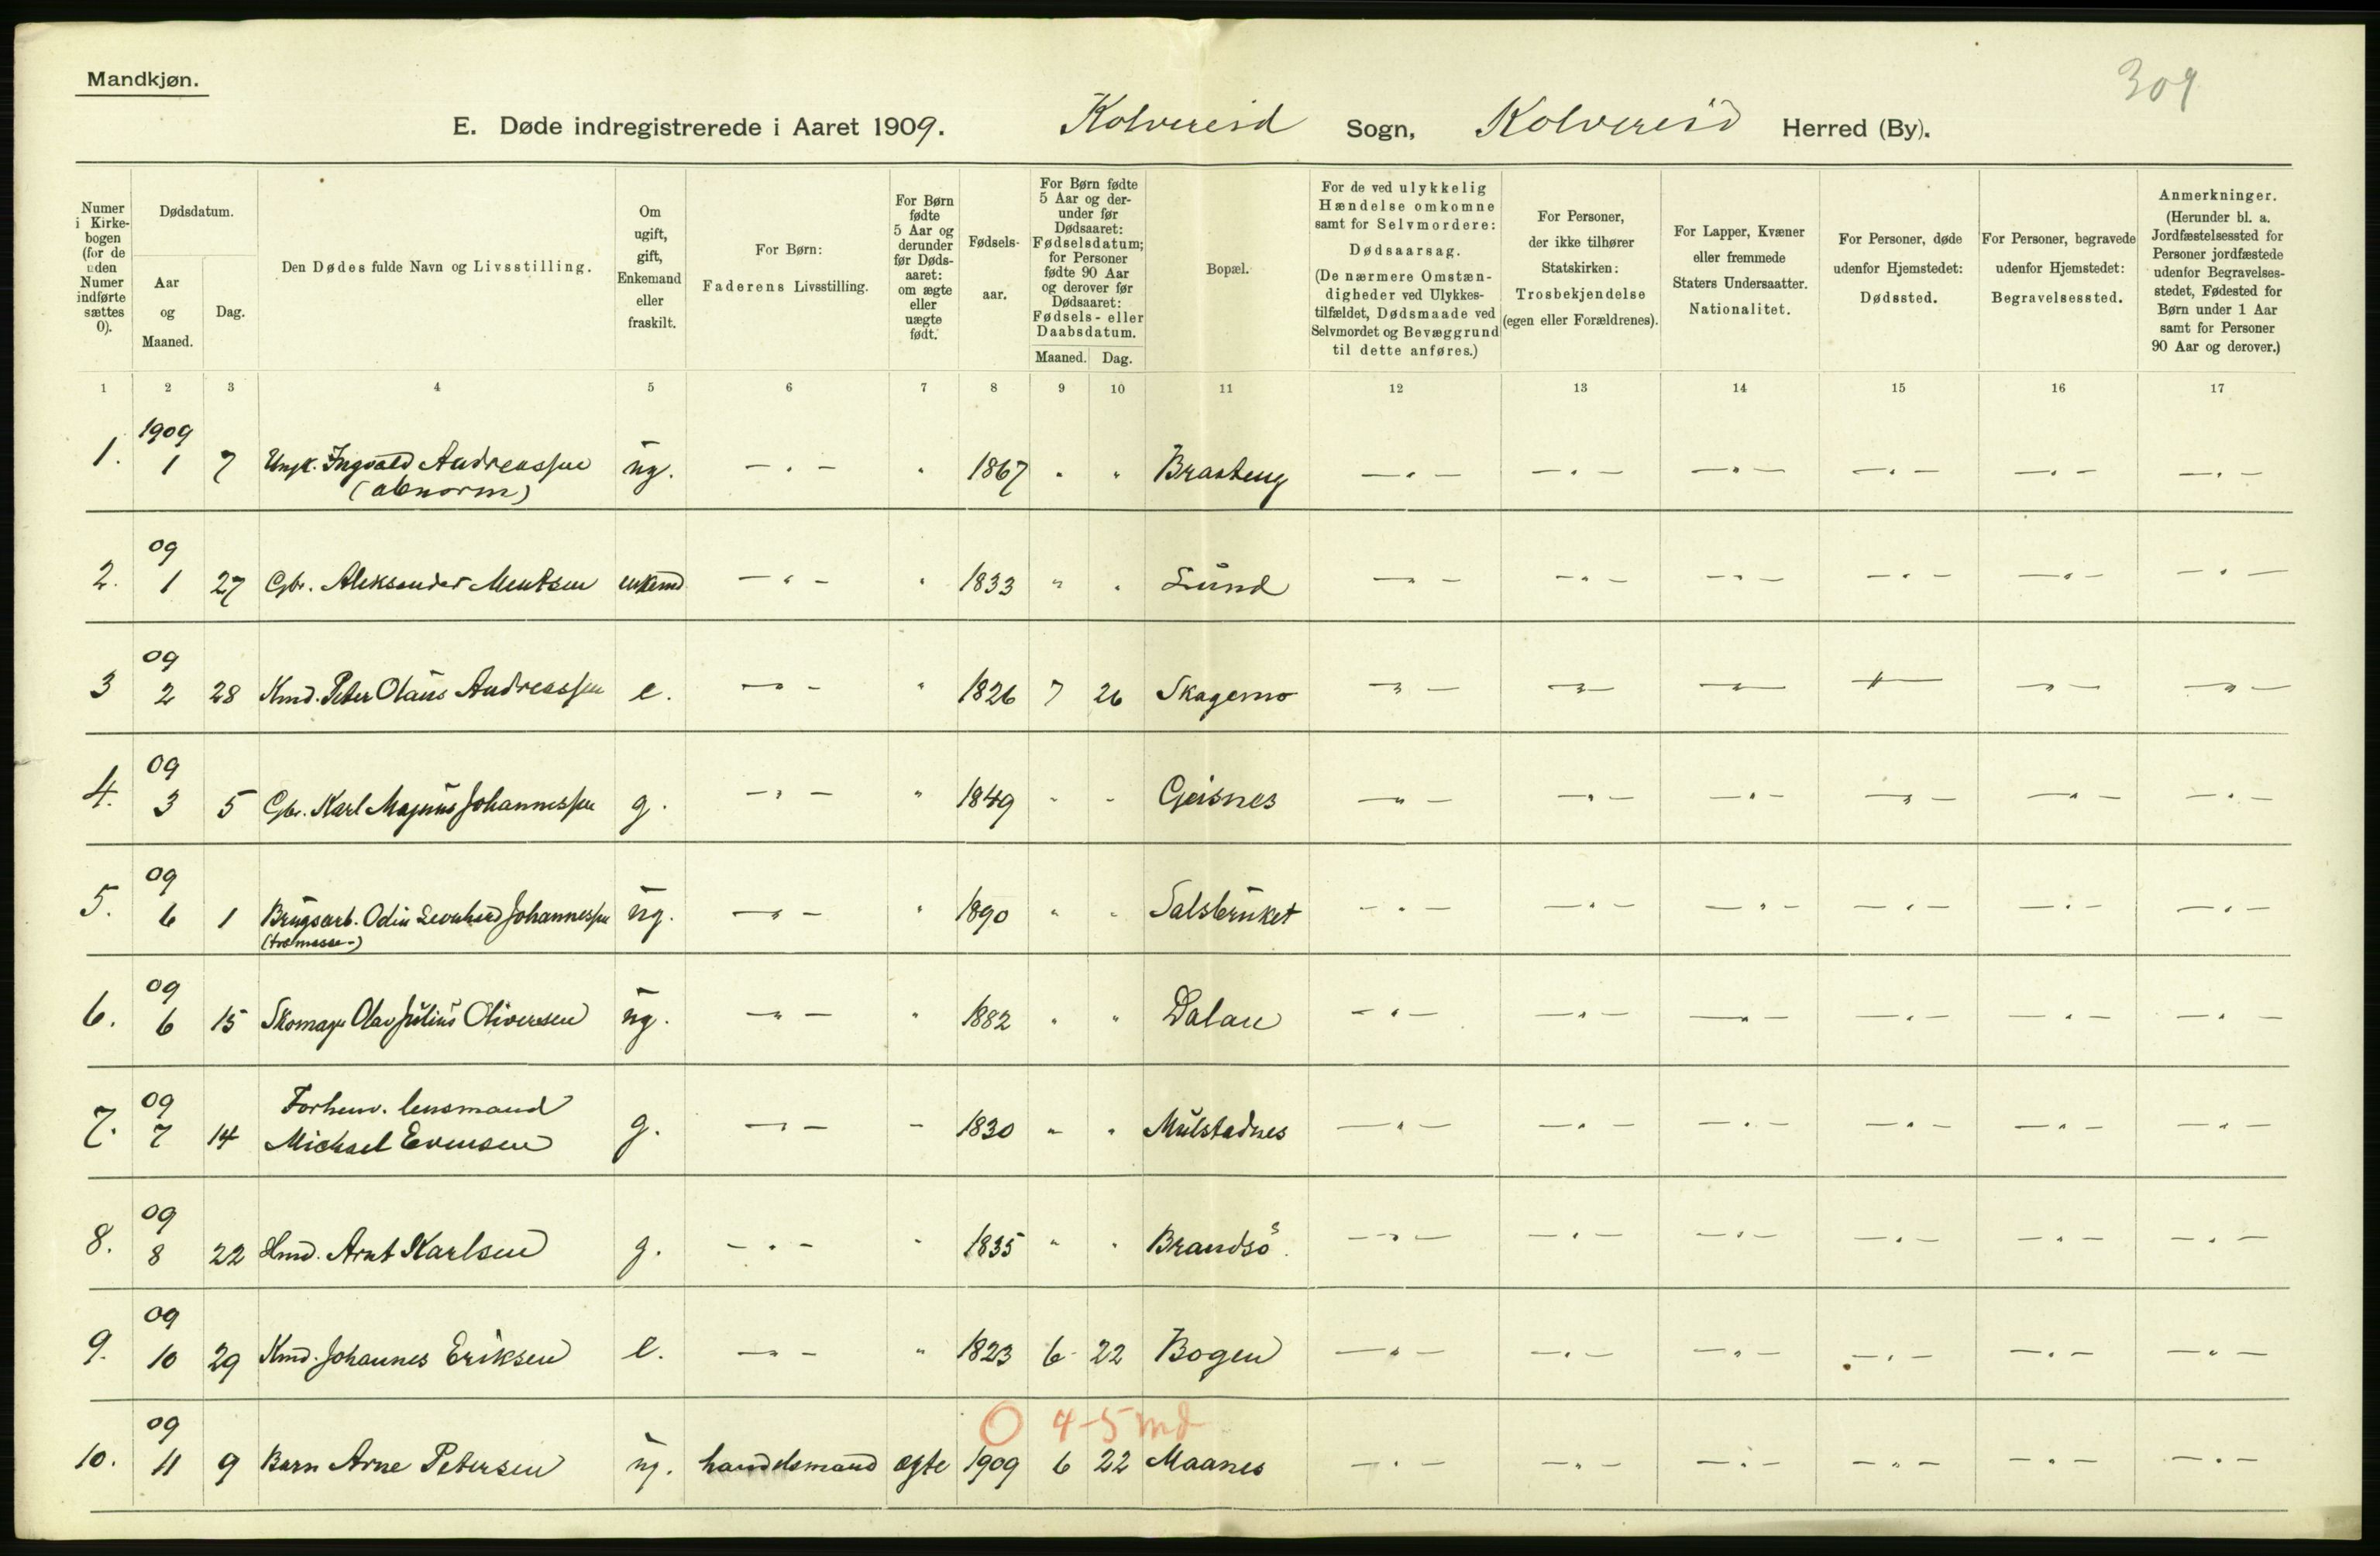 Mandkjøn.
309
E. Døde indregistrerede i Aaret 1909. Kolvereid Sogn, Kolvereid Herred (By).
Numer i Kirkebogen (for de uden Numer indførte sættes 0).
Dødsdatum.
Aar og Maaned.
Dag.
Den Dødes fulde Navn og Livsstilling.
Om ugift, gift, Enkemand eller fraskilt.
For Børn: Faderens Livsstilling.
For Børn fødte 5 Aar og derunder før Dødsaaret: om ægte eller uægte født.
Fødselsaar.
For Børn fødte 5 Aar og derunder før Dødsaaret: Fødselsdatum; for Personer fødte 90 Aar og derover før Dødsaaret: Fødsels- eller Daabsdatum.
Maaned. Dag.
Bopæl.
For de ved ulykkelig Hændelse omkomne samt for Selvmordere: Dødsaarsag. (De nærmere Omstændigheder ved Ulykkestilfældet, Dødsmaade ved Selvmordet og Bevæggrund til dette anføres.)
For Personer, der ikke tilhører Statskirken: Trosbekjendelse (egen eller Forældrenes).
For Lapper, Kvæner eller fremmede Staters Undersaatter. Nationalitet.
For Personer, døde udenfor Hjemstedet: Dødssted.
For Personer, begravede udenfor Hjemstedet: Begravelsessted.
Anmerkninger. (Herunder bl. a. Jordfæstelsessted for Personer jordfæstede udenfor Begravelsesstedet, Fødested for Børn under 1 Aar samt for Personer 90 Aar og derover.)
1 2 3 4 5 6 7 8 9 10 11 12 13 14 15 16 17
1909
1. 1 7 Ungk. Ingvald Andreassen ug. — " — " 1867 " " Brasteng — " — — " — — " — — " — — " — — " —
(abnorm)
09
2. 1 27 Gbr. Aleksander Mentsen enkemd — " — " 1833 " " Lund — " — — " — — " — — " — — " — — " —
09
3 2 28 Kmd. Peter Olaus Andreassen e. — " — " 1826 7 26 Skagemo — " — — " — — " — — " — — " — — " —
09
4. 3 5 Gbr. Karl Magnus Johannessen g. — " — " 1849 " " Geisnes — " — — " — — " — — " — — " — — " —
09
5. 6 1 Brugsarb. Odin Leonhard Johannessen ug. — " — " 1890 " " Salsbruket — " — — " — — " — — " — — " — — " —
(træmasse-)
09
6. 6 15 Skomager Olav Julius Oliversen ug. — " — " 1882 " " Dalan — " — — " — — " — — " — — " — — " —
09 Forhenv. lensmand
7. 7 14 Michael Evensen g. — " — " 1830 " " Mulstadnes — " — — " — — " — — " — — " — — " —
09
8. 8 22 Hmd. Arnt Karlsen g. — " — " 1835 " " Brandsö. — " — — " — — " — — " — — " — — " —
09
9. 10 29 Kmd. Johannes Eriksen e. — " — " 1823 6 22 Bogen — " — — " — — " — — " — — " — — " —
09 0 4-5 md
10. 11 9 Barn Arne Petersen ug. handelsmand egte 1909 6 22 Maanes — " — — " — — " — — " — — " — — " —